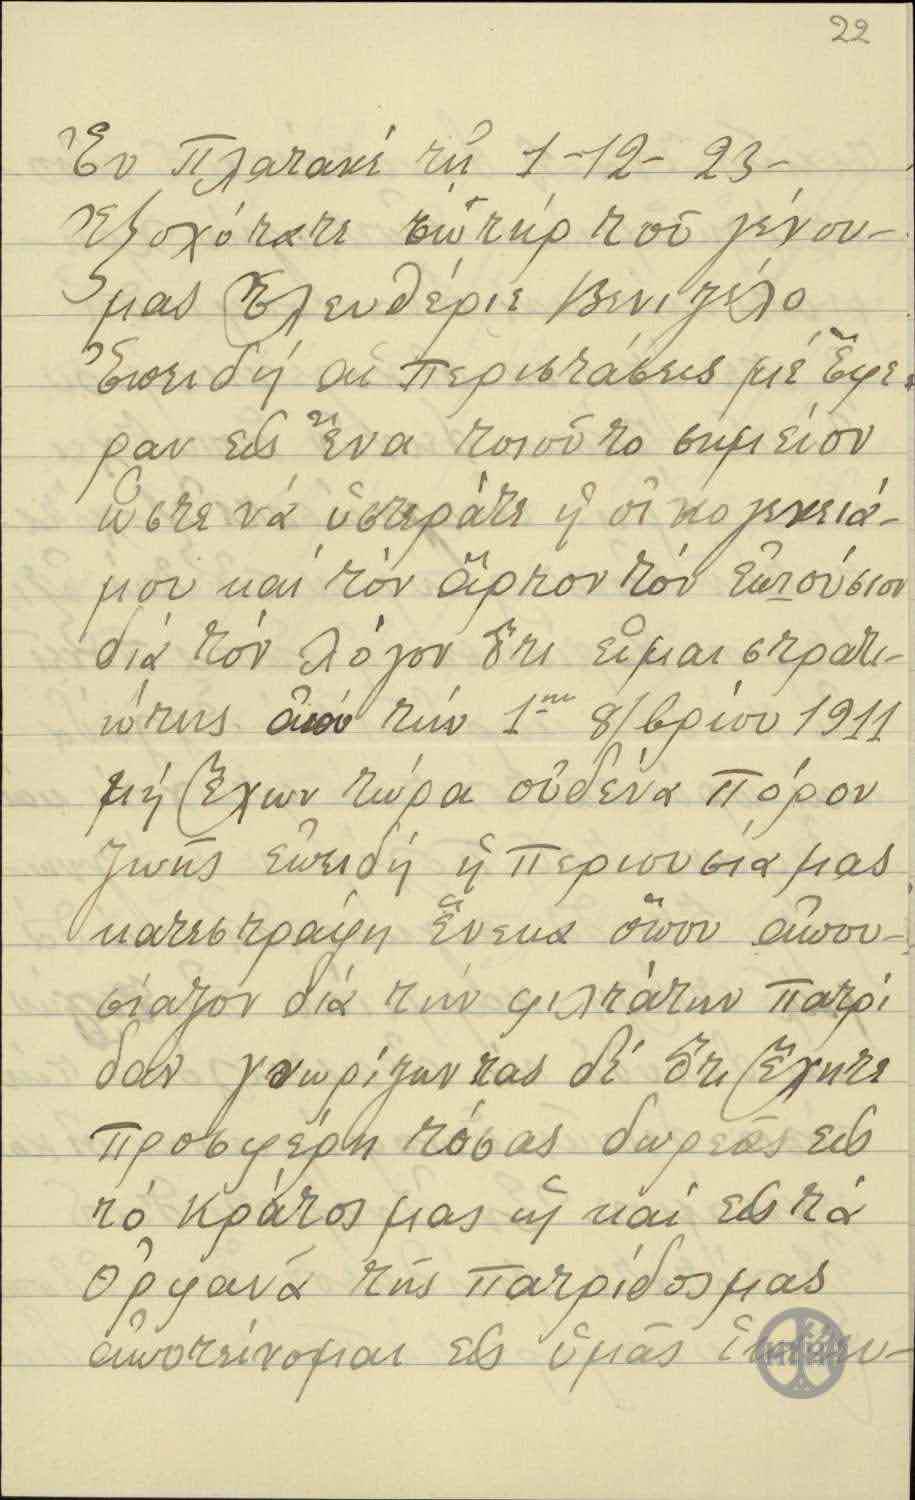 22
Ἐν Πλατανέ τῇ 1-12-23-
Ἐξοχότατε σωτήρ τοῦ γένου-
μας Ἐλευθέριε Βενιζέλο
Ἐπειδή αἱ περιστάσεις μέ ἔφε-
ραν εἰς ἕνα τοιοῦτο σημείον
ὥστε νά ὑστεράτε ἡ οἰκογενειά-
μου καί τόν ἄρτον τόν ἐπιούσιον
διά τόν λόγον ὅτι εἶμαι στρατι-
ώτης ἀπό τήν 1ην 8/βρίου 1911
μή ἔχων τώρα οὐδένα πόρον
ζωῆς ἐπειδή ἡ περιουσία μας
κατεστράφη ἕνεκα ὅπου ἀπου-
σίαζον διά τήν φιλτάτην πατρί
δαν γνωρίζωντας δέ ὅτι ἔχητε
προσφέρη τόσας δωρεᾶς εἰς
τό κράτος μας ἤ καί εἰς τά
ὀρφανά τῆς πατρίδος μας
ἀποτείνομαι εἰς ὑμᾶς